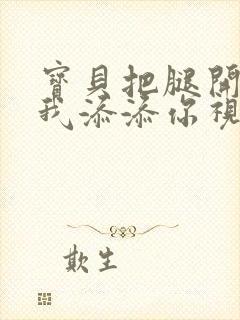 寶貝把腿開
我添添你視
欺生